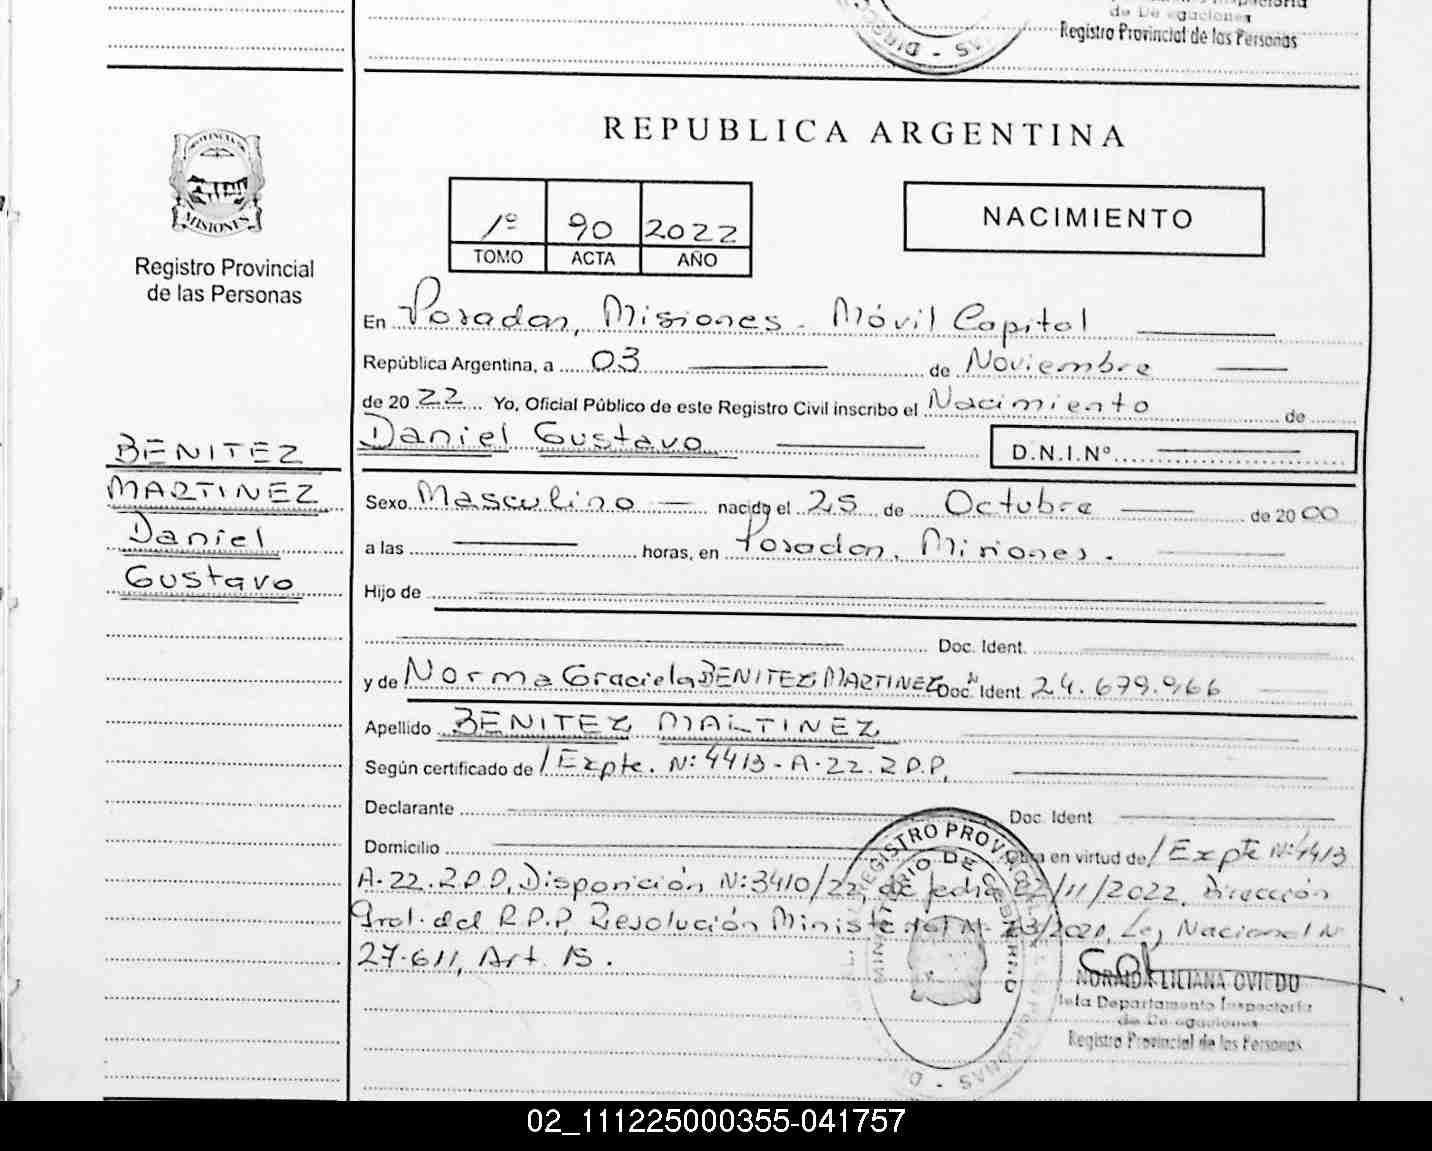 de De egaciones
Registro Provincial de las Personas
REPUBLICA ARGENTINA
PROVINCIA DE
MISIONES
Registro Provincial
de las Personas
1º 90 2022
TOMO ACTA AÑO
NACIMIENTO
En Posadas, Misiones - Móvil Capital
República Argentina, a 03 de Noviembre
de 2022 Yo, Oficial Público de este Registro Civil inscribo el Nacimiento de
Daniel Gustavo D.N.I.Nº
BENITEZ
MARTINEZ
Daniel
Gustavo
Sexo Masculino nacido el 25 de Octubre de 2000
a las horas, en Posadas, Misiones.
Hijo de
Doc. Ident.
y de Norma Graciela BENITEZ MARTINEZ Doc. Ident. 24.679.966
Apellido BENITEZ MARTINEZ
Según certificado de / Expte. Nº 4413-A-22.R.P.P.
Declarante Doc. Ident
Domicilio Obra en virtud de / Expte Nº 4413
A-22.R.P.P, Disposición Nº 3410/22, de fecha /11/2022, Dirección
Gral. del R.P.P, Resolución Ministerial Nº /2021, Ley Nacional Nº
27.611, Art. 15.
REGISTRO PROV
MINISTERIO DE GOBIERNO
NORMA LILIANA OVIEDO
Departamento Inspectoria
de De egaciones
Registro Provincial de las Personas
02_111225000355-041757